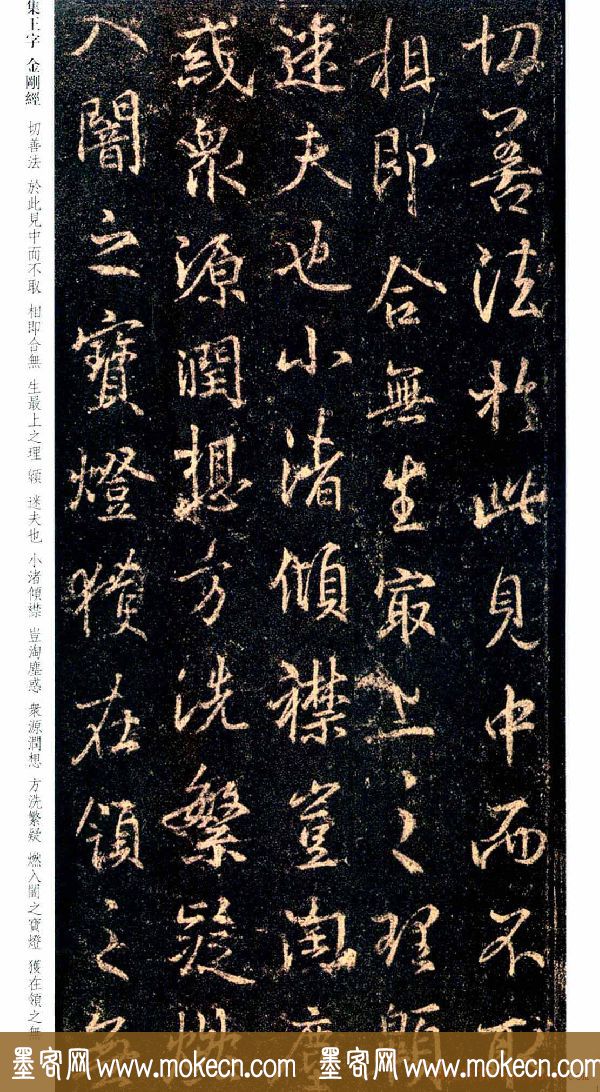 切善法於此見中而不取
相即合無生最上之理顗
迷夫也小渚傾襟豈淘塵
惑衆源潤想方洗繁疑燃
入闇之寶燈獲在領之無
集王字 金剛經 切善法 於此見中而不取 相即合無 生最上之理 顗 迷夫也 小渚傾襟 豈淘塵惑 衆源潤想 方洗繁疑 燃入闇之寶燈 獲在領之無
墨客网 www.mokecn.com 墨客网 www.mokecn.com